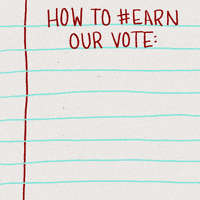 HOW TO #EARN
OUR VOTE: